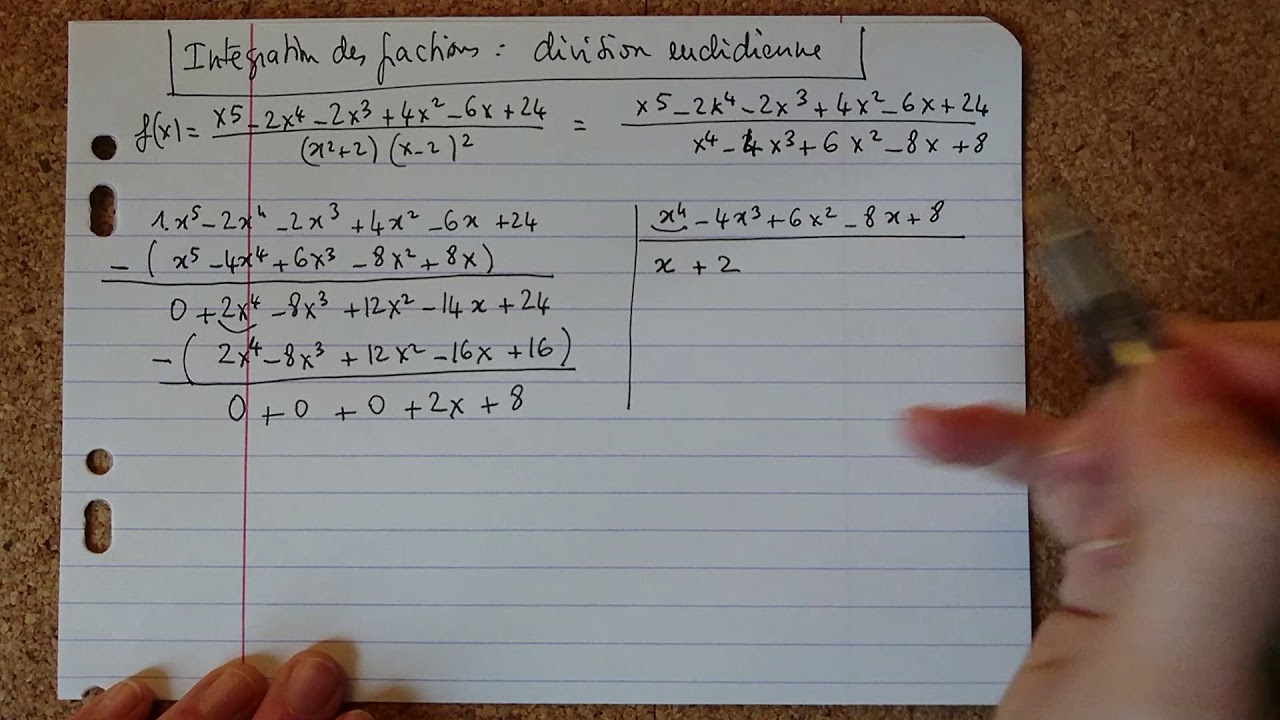 Intégration des fractions : division euclidienne
f(x) = (x⁵ - 2x⁴ - 2x³ + 4x² - 6x + 24) / ((x² + 2) (x - 2)²) = (x⁵ - 2x⁴ - 2x³ + 4x² - 6x + 24) / (x⁴ - 4x³ + 6x² - 8x + 8)
1.x⁵ - 2x⁴ - 2x³ + 4x² - 6x + 24 | x⁴ - 4x³ + 6x² - 8x + 8
- (x⁵ - 4x⁴ + 6x³ - 8x² + 8x) | x + 2
0 + 2x⁴ - 8x³ + 12x² - 14x + 24
- (2x⁴ - 8x³ + 12x² - 16x + 16)
0 + 0 + 0 + 2x + 8